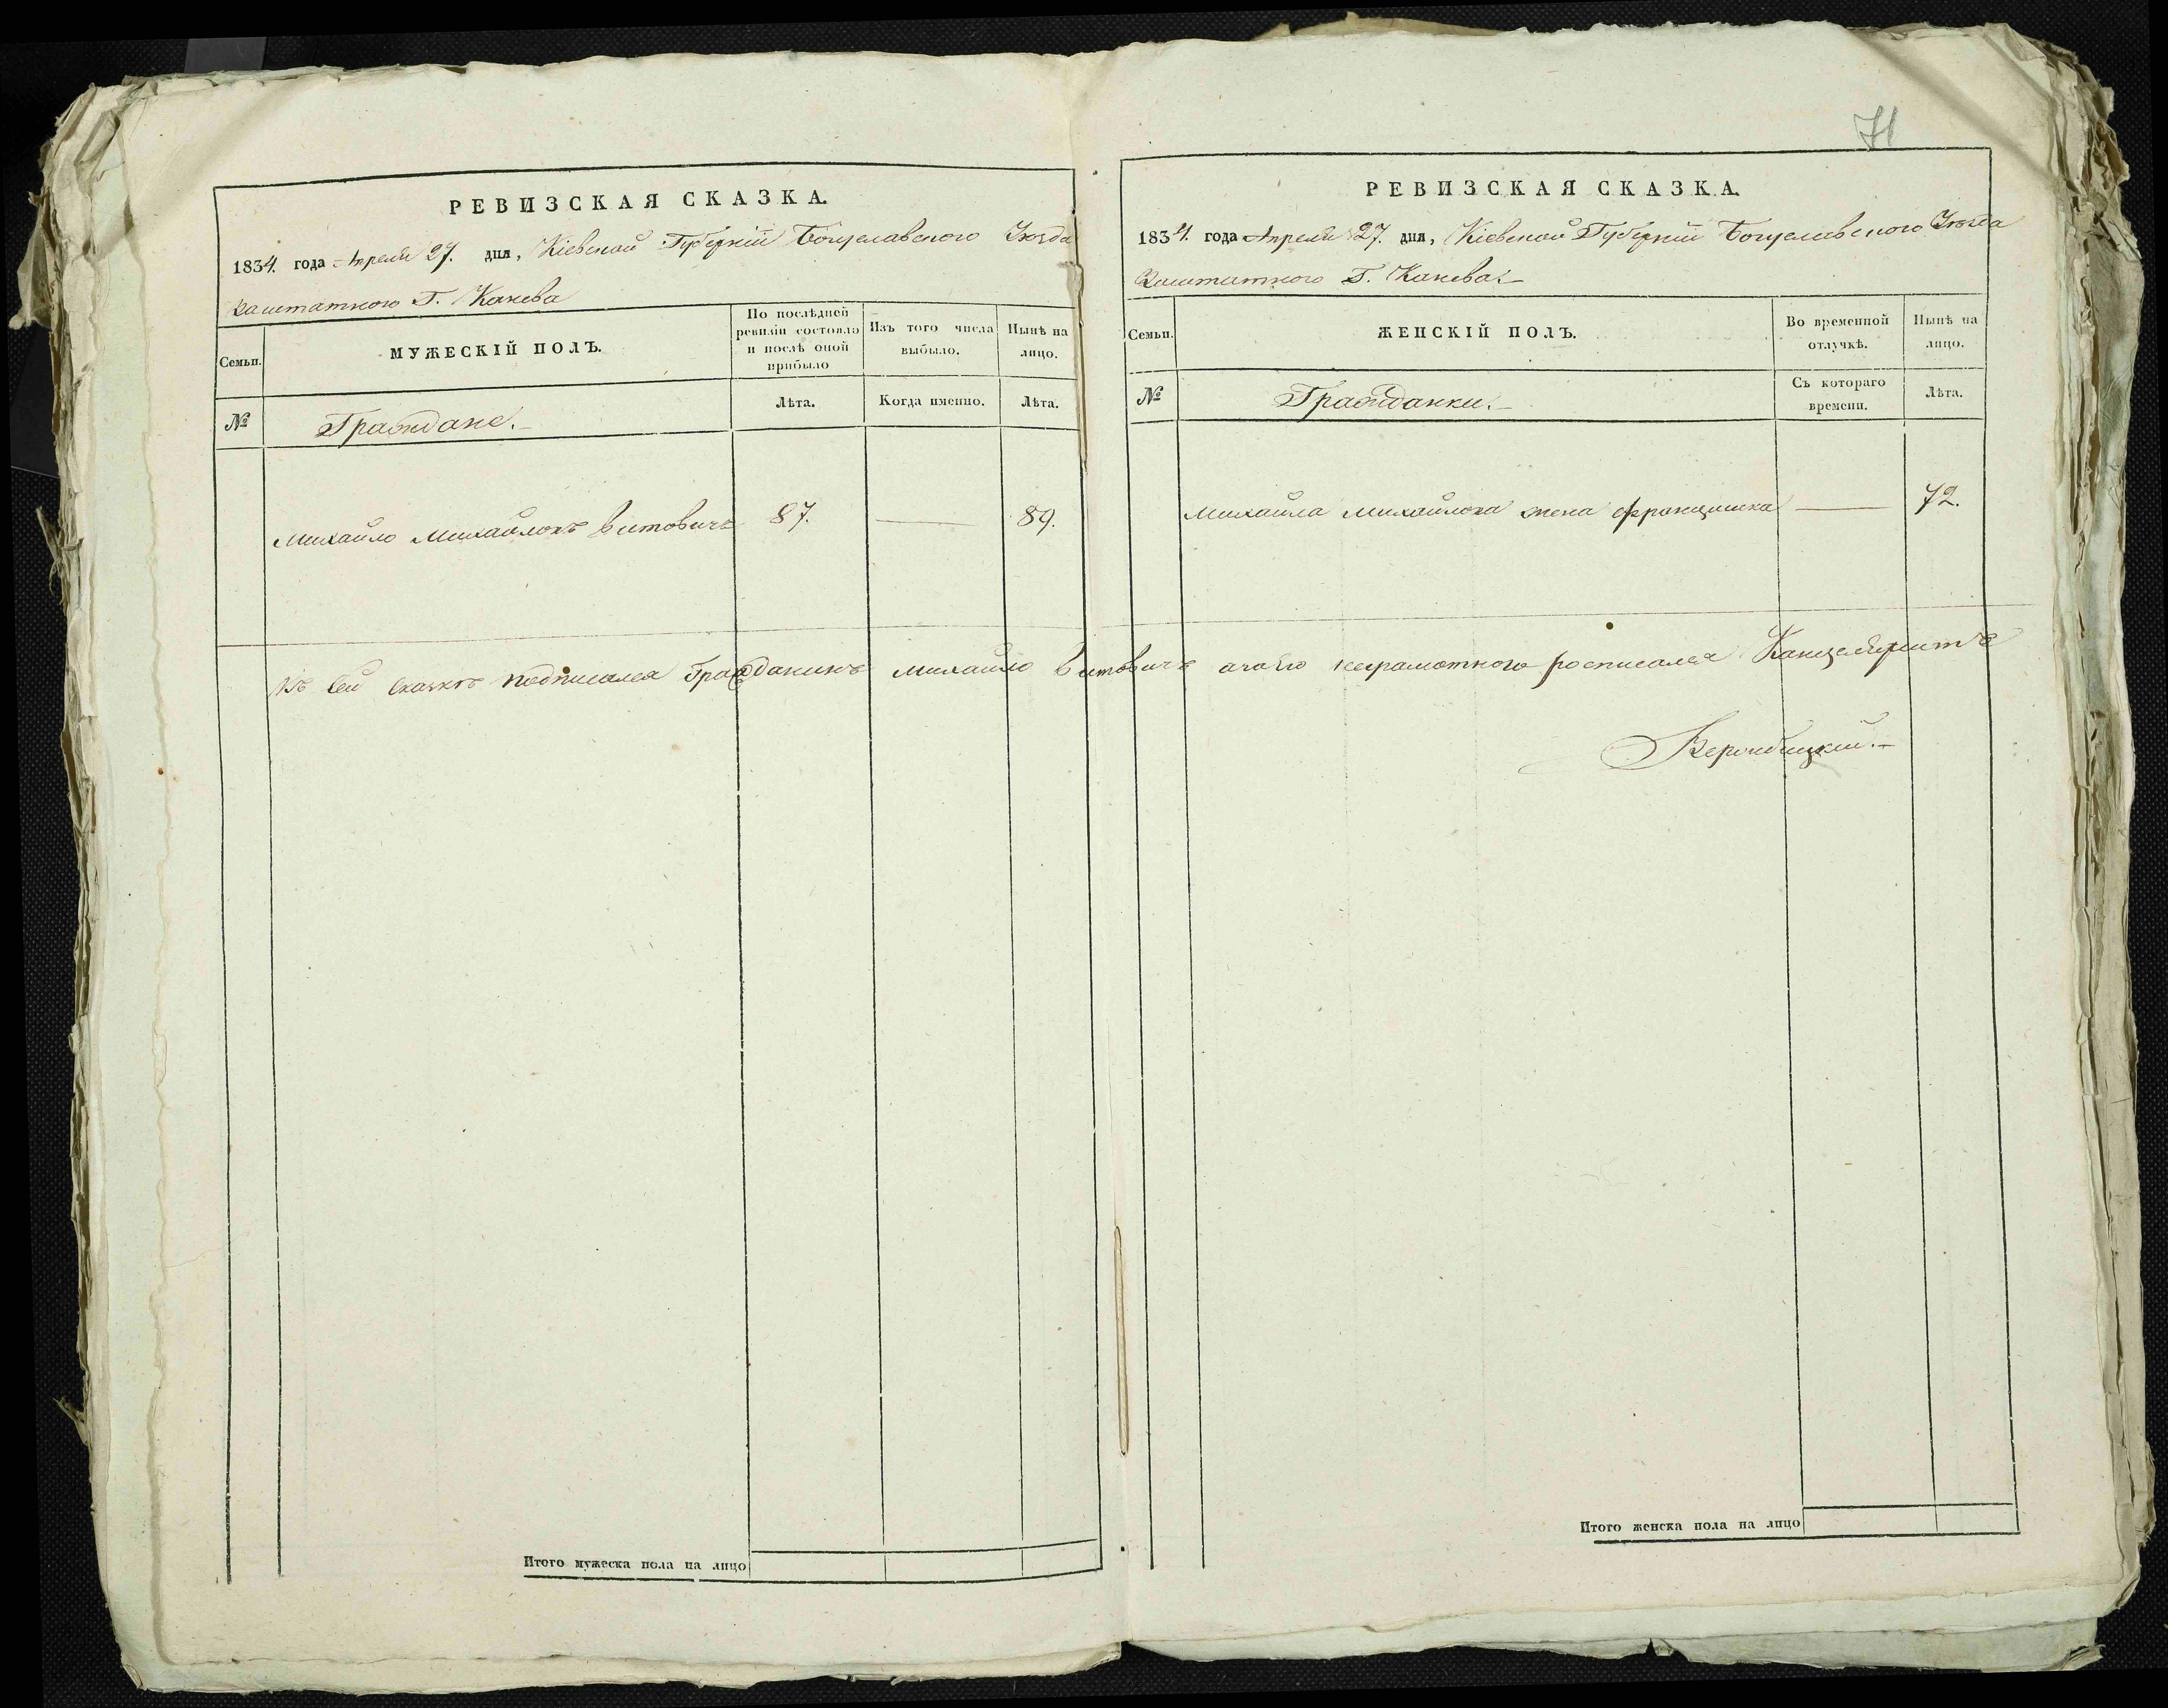 71
РЕВИЗСКАЯ СКАЗКА.
1834. года Апреля 27. дня, Кіевской Губерніи Богуславского Уѣзда
Заштатного Г. Канева
Семьи.
МУЖЕСКІЙ ПОЛЪ.
По послѣдней ревизіи состояло и послѣ оной прибыло
Изъ того числа выбыло.
Нынѣ на лицо.
№
Граждане.
Лѣта.
Когда именно.
Лѣта.
Михайло Михайловъ Витовичъ 87. — 89.
РЕВИЗСКАЯ СКАЗКА.
1834. года Апреля 27. дня, Кіевской Губерніи Богуславского Уѣзда
Заштатного Г. Канева
Семьи.
ЖЕНСКІЙ ПОЛЪ.
Во временной отлучкѣ.
Нынѣ на лицо.
№
Гражданки.
Съ котораго времени.
Лѣта.
Михайла Михайлова жена Францишка — 72.
Къ сей скаскѣ подписался Гражданинъ Михайло Витовичъ а за его неграмотного росписался
Итого мужеска пола на лицо
Итого женска пола на лицо